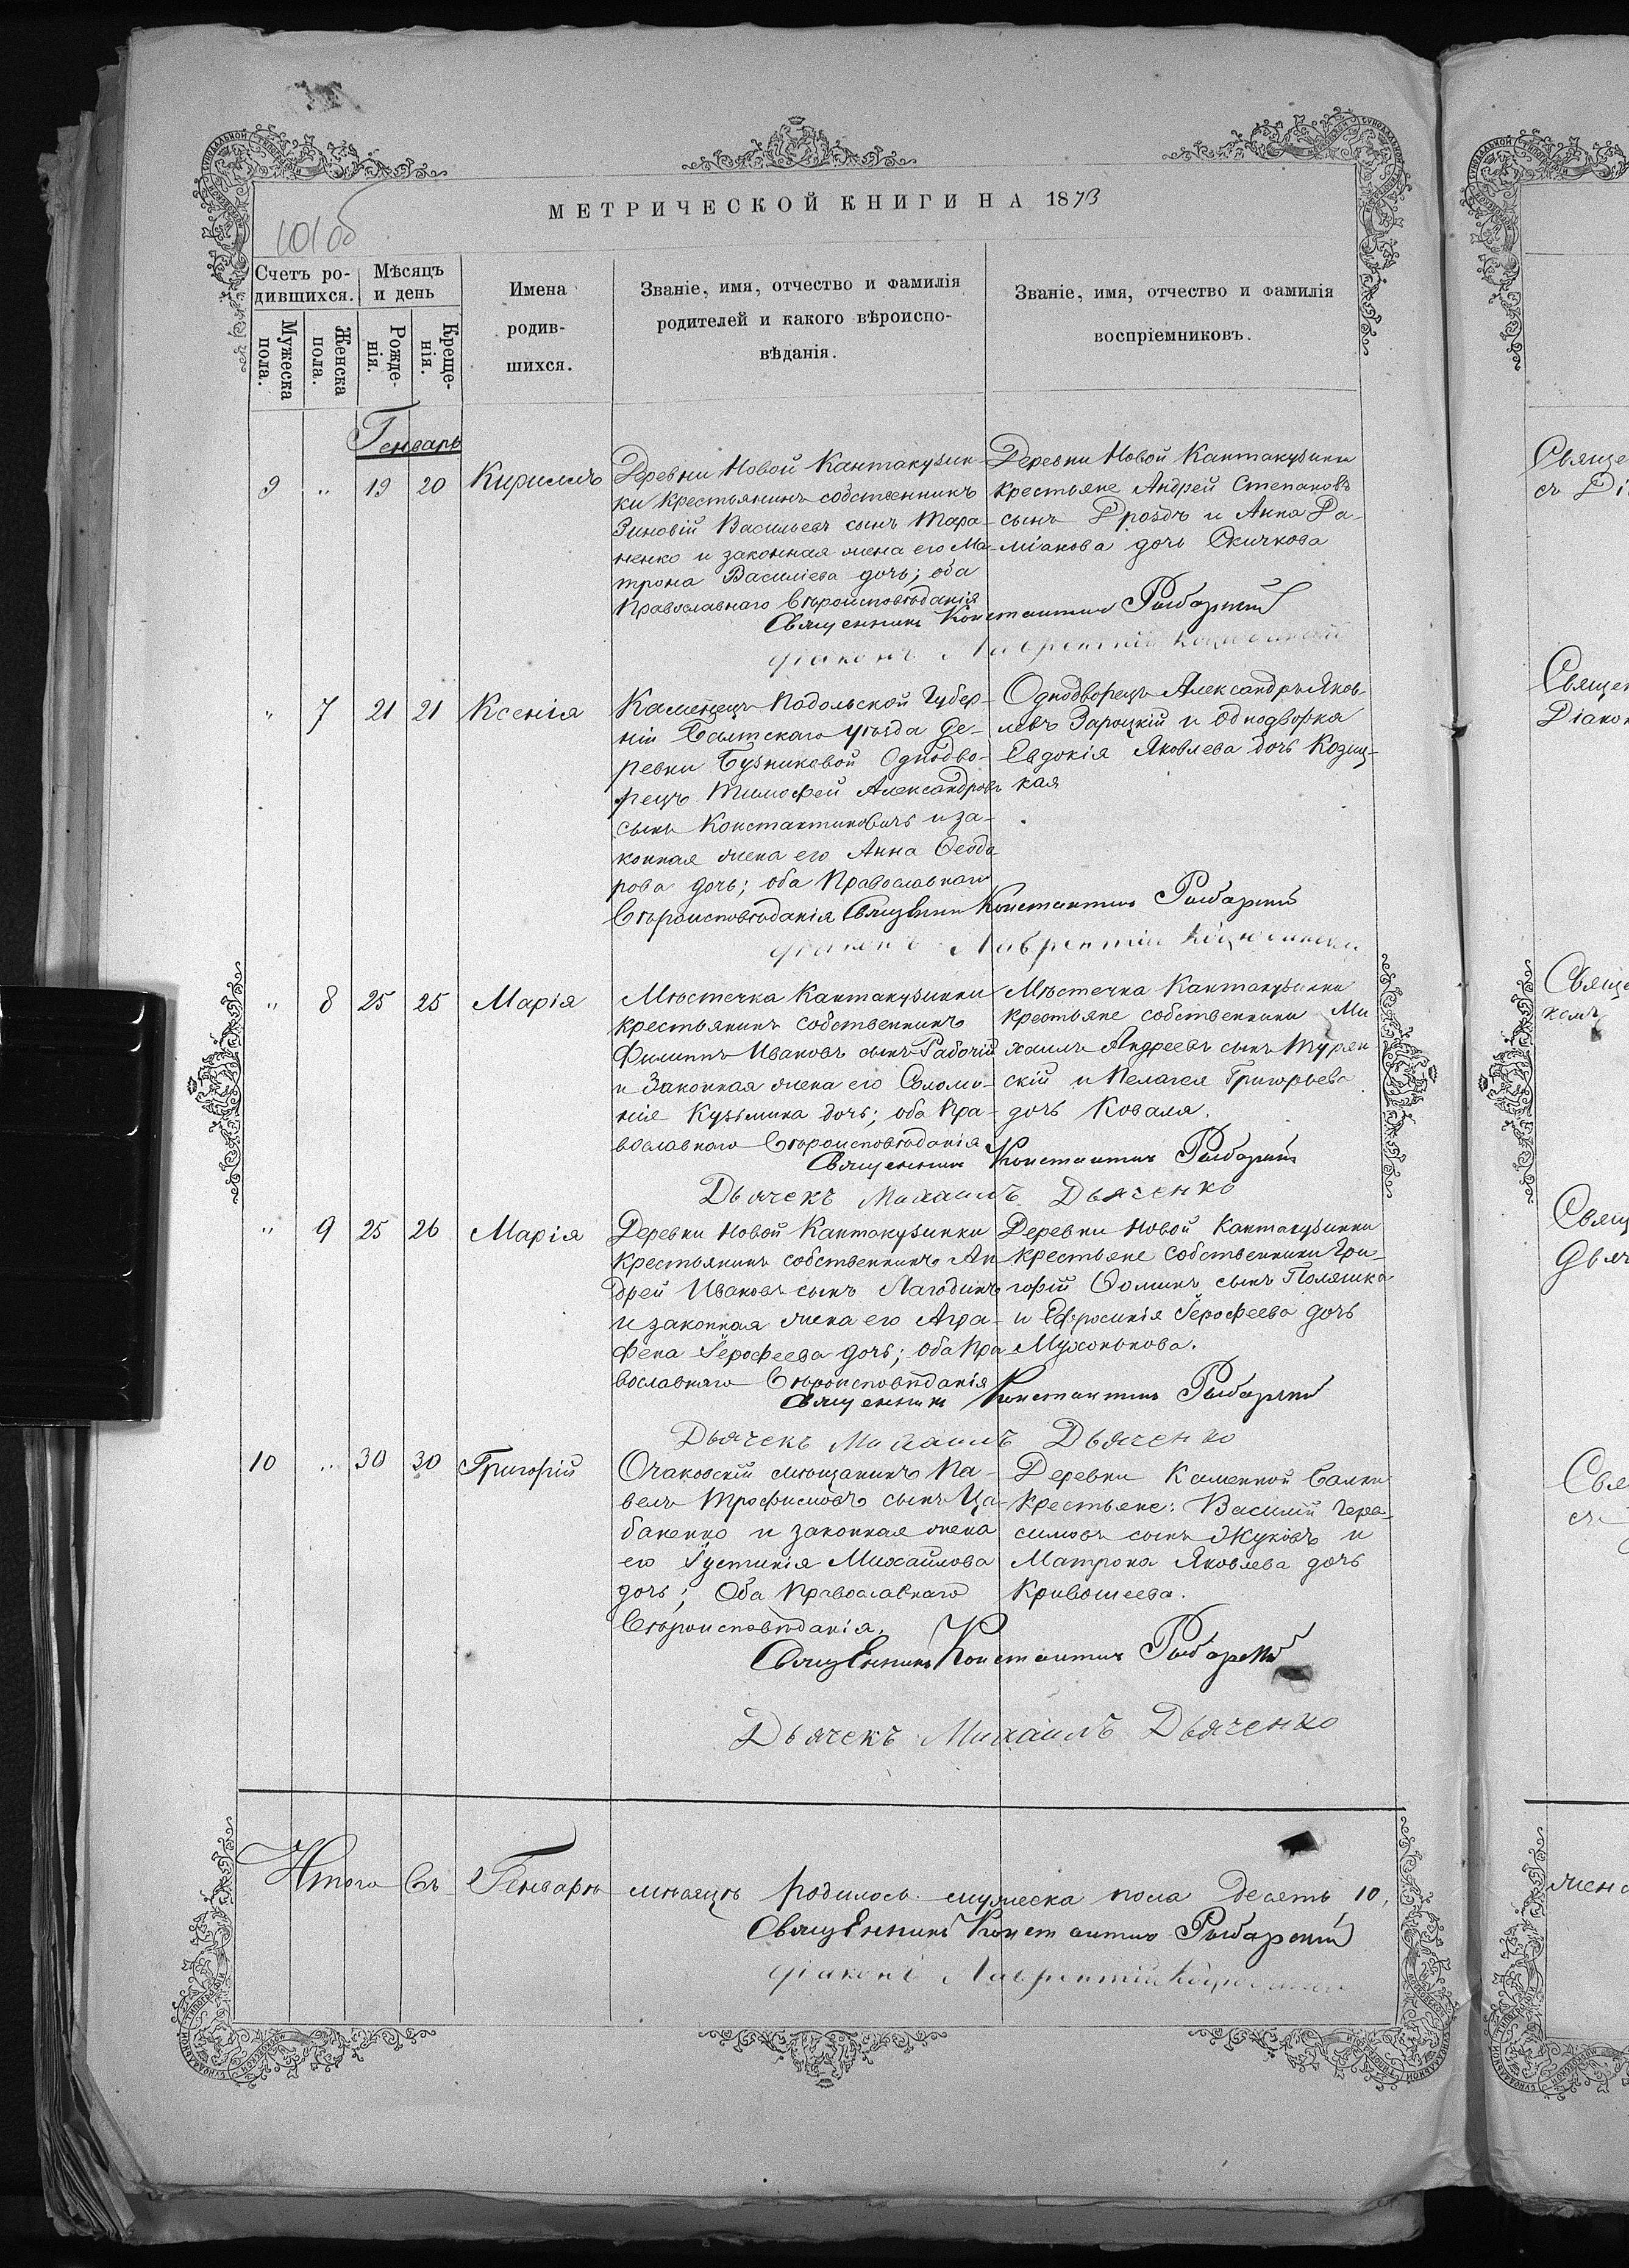 МЕТРИЧЕСКОЙ КНИГИ НА 1873
101об
Счетъ ро-
дившихся.
Мѣсяцъ
и день
Мужеска
пола.
Женска
пола.
Рожде-
нія.
Креще-
нія.
Имена
родив-
шихся.
Званіе, имя, отчество и фамилія
родителей и какого вѣроиспо-
вѣданія.
Званіе, имя, отчество и фамилія
воспріемниковъ.
Генварь
9 " 19 20 Кириллъ
Деревни Новой Кантакузин-
ки крестьянинъ собственникъ
Зиновій Васильевъ сынъ Тара-
ненко и законная жена его Ма-
трона Василіева дочь; оба
Православнаго Вѣроисповѣданія
Деревни Новой Кантакузинки
крестьяне Андрей Степановъ
сынъ Дроздъ и Анна Да-
міанова дочь Скичкова
Священникъ Константинъ Рыбарскій
Діаконъ Лаврентій
" 7 21 21 Ксенія
Каменецъ Подольской Губер-
ніи Балтскаго уѣзда де-
ревни Бузниковой Однодво-
рецъ Тимофей Александровъ
сынъ Константиновичъ и за-
конная жена его Анна Феодо
рова дочь; оба Православнаго
Вѣроисповѣданія
Однодворецъ Александръ Яков-
левъ Зароцкій и однодворка
Евдокія Яковлева дочь Козиц-
кая
Священникъ Константинъ Рыбарскій
Діаконъ Лаврентій
" 8 25 25 Марія
Мѣстечка Кантакузинки
крестьянинъ собственникъ
Филиппъ Ивановъ сынъ Рабочій
и Законная жена его Соломо-
нія Кузьмина дочь; оба Пра-
вославнаго Вѣроисповѣданія
Мѣстечка Кантакузинки
крестьяне собственники Ми
хаилъ Андреевъ сынъ Турян
скій и Пелагея Григорьева
дочь Коваля.
Священникъ Константинъ Рыбарскій
Дьячекъ Михаилъ Дьяченко
" 9 25 26 Марія
Деревни Новой Кантакузинки
крестьянинъ собственникъ Ан
дрей Ивановъ сынъ Лагодинъ
и законная жена его Агра-
фена Іерофеева дочь; оба Пра
вославнаго Вѣроисповѣданія
Деревни Новой Кантакузинки
крестьяне собственники Гри-
горій Фоминъ сынъ Поляшко
и Ефросинія Іерофеева дочь
Мухонькова.
Священникъ Константинъ Рыбарскій
Дьячекъ Михаилъ Дьяченко
10 " 30 30 Григорій
Очаковскій мѣщанинъ Па-
велъ Трофимовъ сынъ Ца-
баненко и законная жена
его Іустинія Михайлова
дочь; Оба Православнаго
Вѣроисповѣданія.
Деревни Каменной Балки
Крестьяне: Василій Гера-
симовъ сынъ Жуковъ и
Матрона Яковлева дочь
Кривошеева.
Священникъ Константинъ Рыбарскій
Дьячекъ Михаилъ Дьяченко
Итого Въ Генварѣ мѣсяцѣ родилось мужеска пола десять 10,
Священникъ Константинъ Рыбарскій
Діаконъ Лаврентій